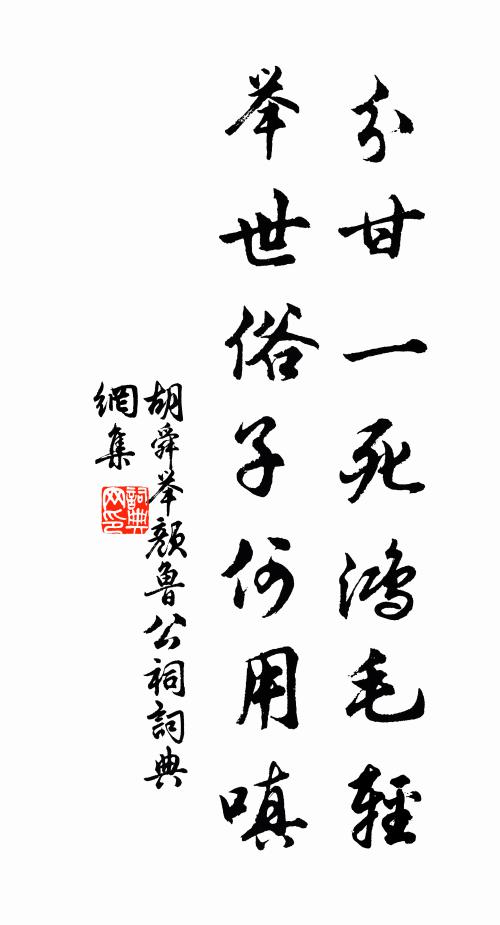 分甘一死鸿毛輕
举世俗子何用嗔
胡舜举顏魯公祠詞典
網集
詞典网印